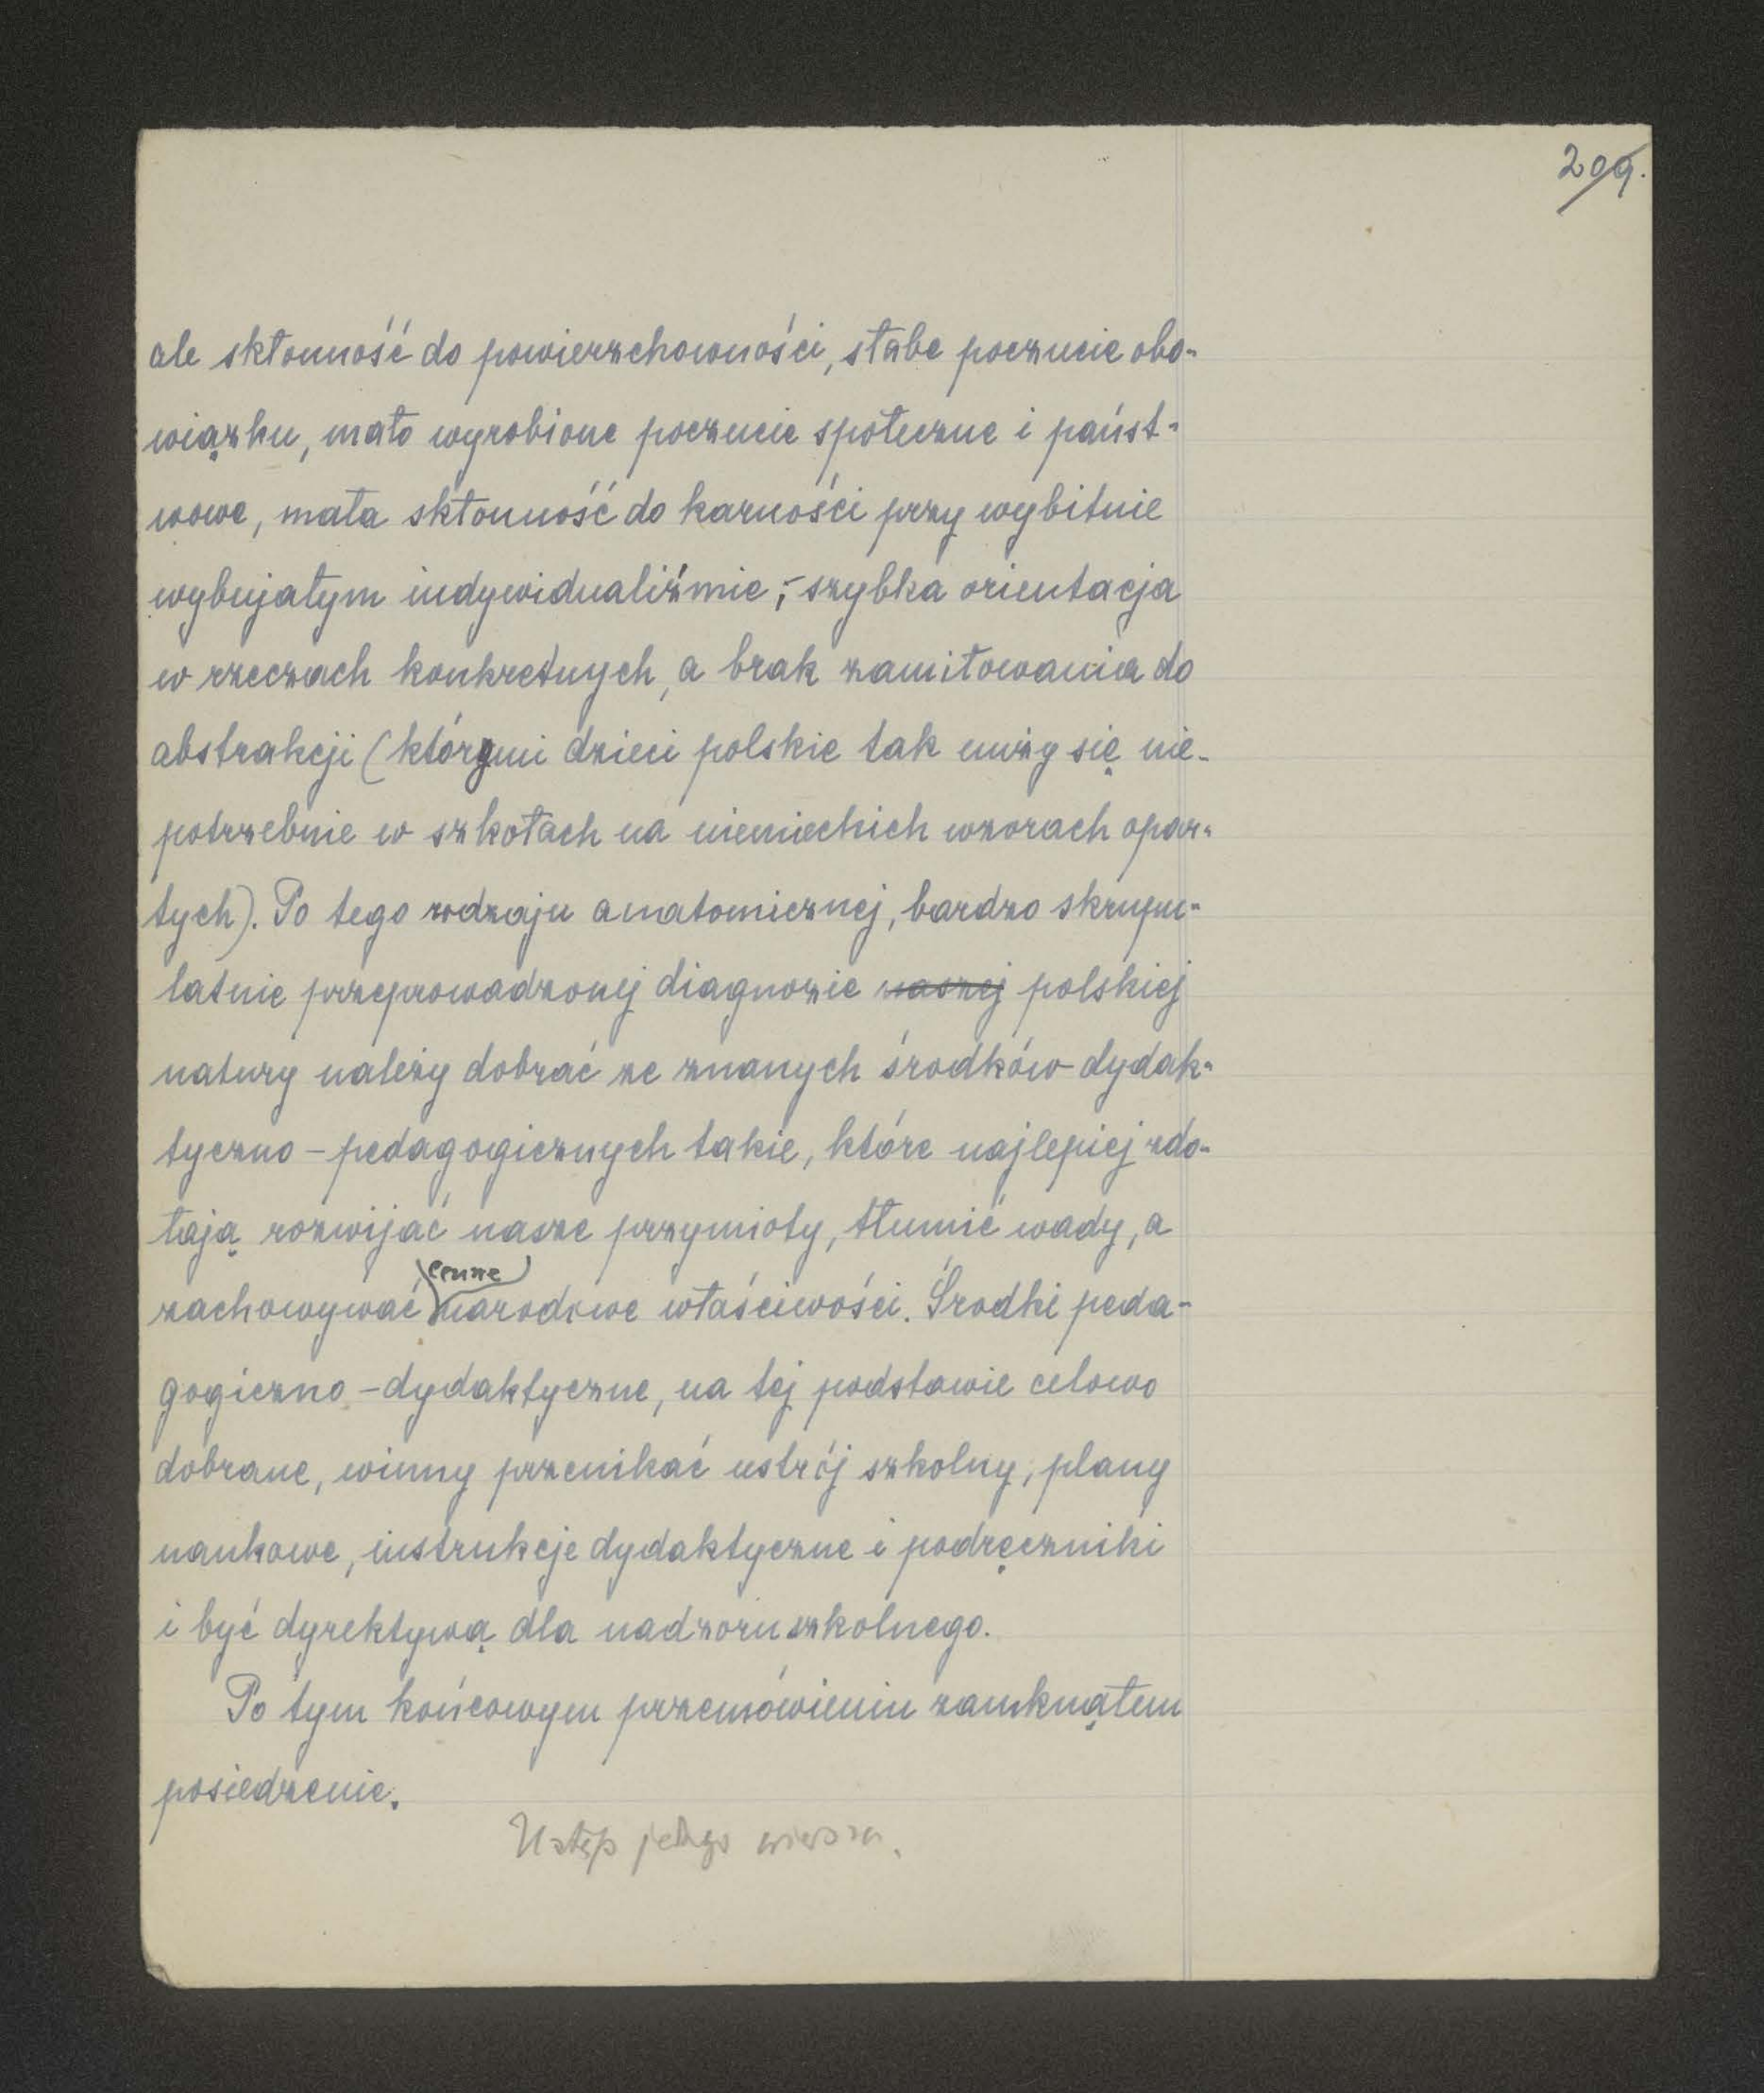 209.
ale skłonność do powierzchowności, słabe poczucie obo-
wiązku, mało wyrobione poczucie społeczne i państ-
wowe, mała skłonność do karności przy wybitnie
wybujałym indywidualiźmie; - szybka orientacja
w rzeczach konkretnych, a brak zamiłowania do
abstrakcji (którymi dzieci polskie tak nuży się nie-
potrzebnie w szkołach na niemieckich wzorach opar-
tych). Po tego rodzaju anatomicznej, bardzo skrupu-
latnie przeprowadzonej diagnozie naszej polskiej
natury należy dobrać ze znanych środków dydak-
tyczno - pedagogicznych takie, które najlepiej zdo-
łają rozwijać nasze przymioty, tłumić wady, a
cenne
zachowywać narodowe właściwości. Środki peda-
gogiczno - dydaktyczne, na tej podstawie celowo
dobrane, winny przenikać ustrój szkolny, plany
naukowe, instrukcje dydaktyczne i podręczniki
i być dyrektywą dla nadzoru szkolnego.
Po tym końcowym przemówieniu zamknąłem
posiedzenie.
Ustęp jednego wiersza.